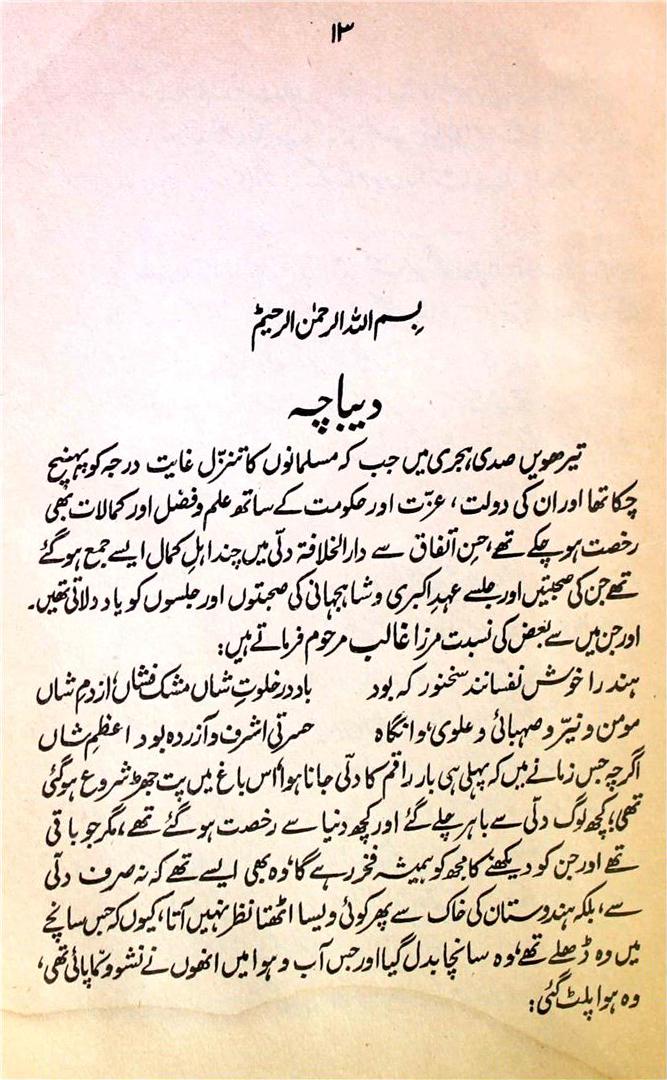 ۱۳
بِسم اللہ الرحمٰن الرحیم
دیباچہ
تیرھویں صدی ہجری میں جب کہ مسلمانوں کا تنزّل غایت درجہ کو پہنچ
چکا تھا اور ان کی دولت، عزّت اور حکومت کے ساتھ علم و فضل اور کمالات بھی
رخصت ہو چکے تھے، حسنِ اتفاق سے دارالخلافۃ دلّی میں چند اہلِ کمال ایسے جمع ہو گئے
تھے جن کی صحبتیں اور جلسے عہدِ اکبری و شاہجہانی کی صحبتوں اور جلسوں کو یاد دلاتی تھیں۔
اور جن میں سے بعض کی نسبت مرزا غالب مرحوم فرماتے ہیں:
ہند را خوش نفسانند سخنور کہ بود باد در خلوتِ شاں مشک فشاں از دمِ شاں
مومن و نیّر و صہبائی و علوی، وانگاہ حسرتی اشرف و آزردہ بود اعظمِ شاں
اگرچہ جس زمانے میں کہ پہلی ہی بار راقم کا دلّی جانا ہوا، اس باغ میں پت جھڑ شروع ہو گئی
تھی؛ کچھ لوگ دلّی سے باہر چلے گئے اور کچھ دنیا سے رخصت ہو گئے تھے، مگر جو باقی
تھے اور جن کو دیکھنے کا مجھ کو ہمیشہ فخر رہے گا، وہ بھی ایسے تھے کہ نہ صرف دلّی
سے، بلکہ ہندوستان کی خاک سے پھر کوئی ویسا اٹھتا نظر نہیں آتا، کیوں کہ جس سانچے
میں وہ ڈھلے تھے، وہ سانچا بدل گیا اور جس آب و ہوا میں انھوں نے نشوونما پائی تھی،
وہ ہوا پلٹ گئی: